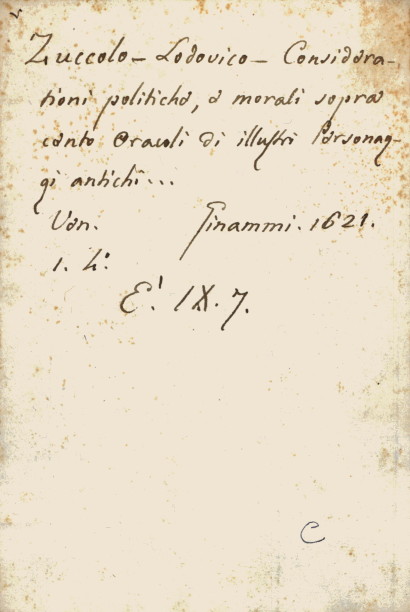 Zuccolo - Lodovico - Considera-
tioni politiche, e morali sopra
cento Oracoli di illustri Personag-
gi antichi...
Ven. Ginammi. 1621.
1. 4.º
E'. IX. 7.
C